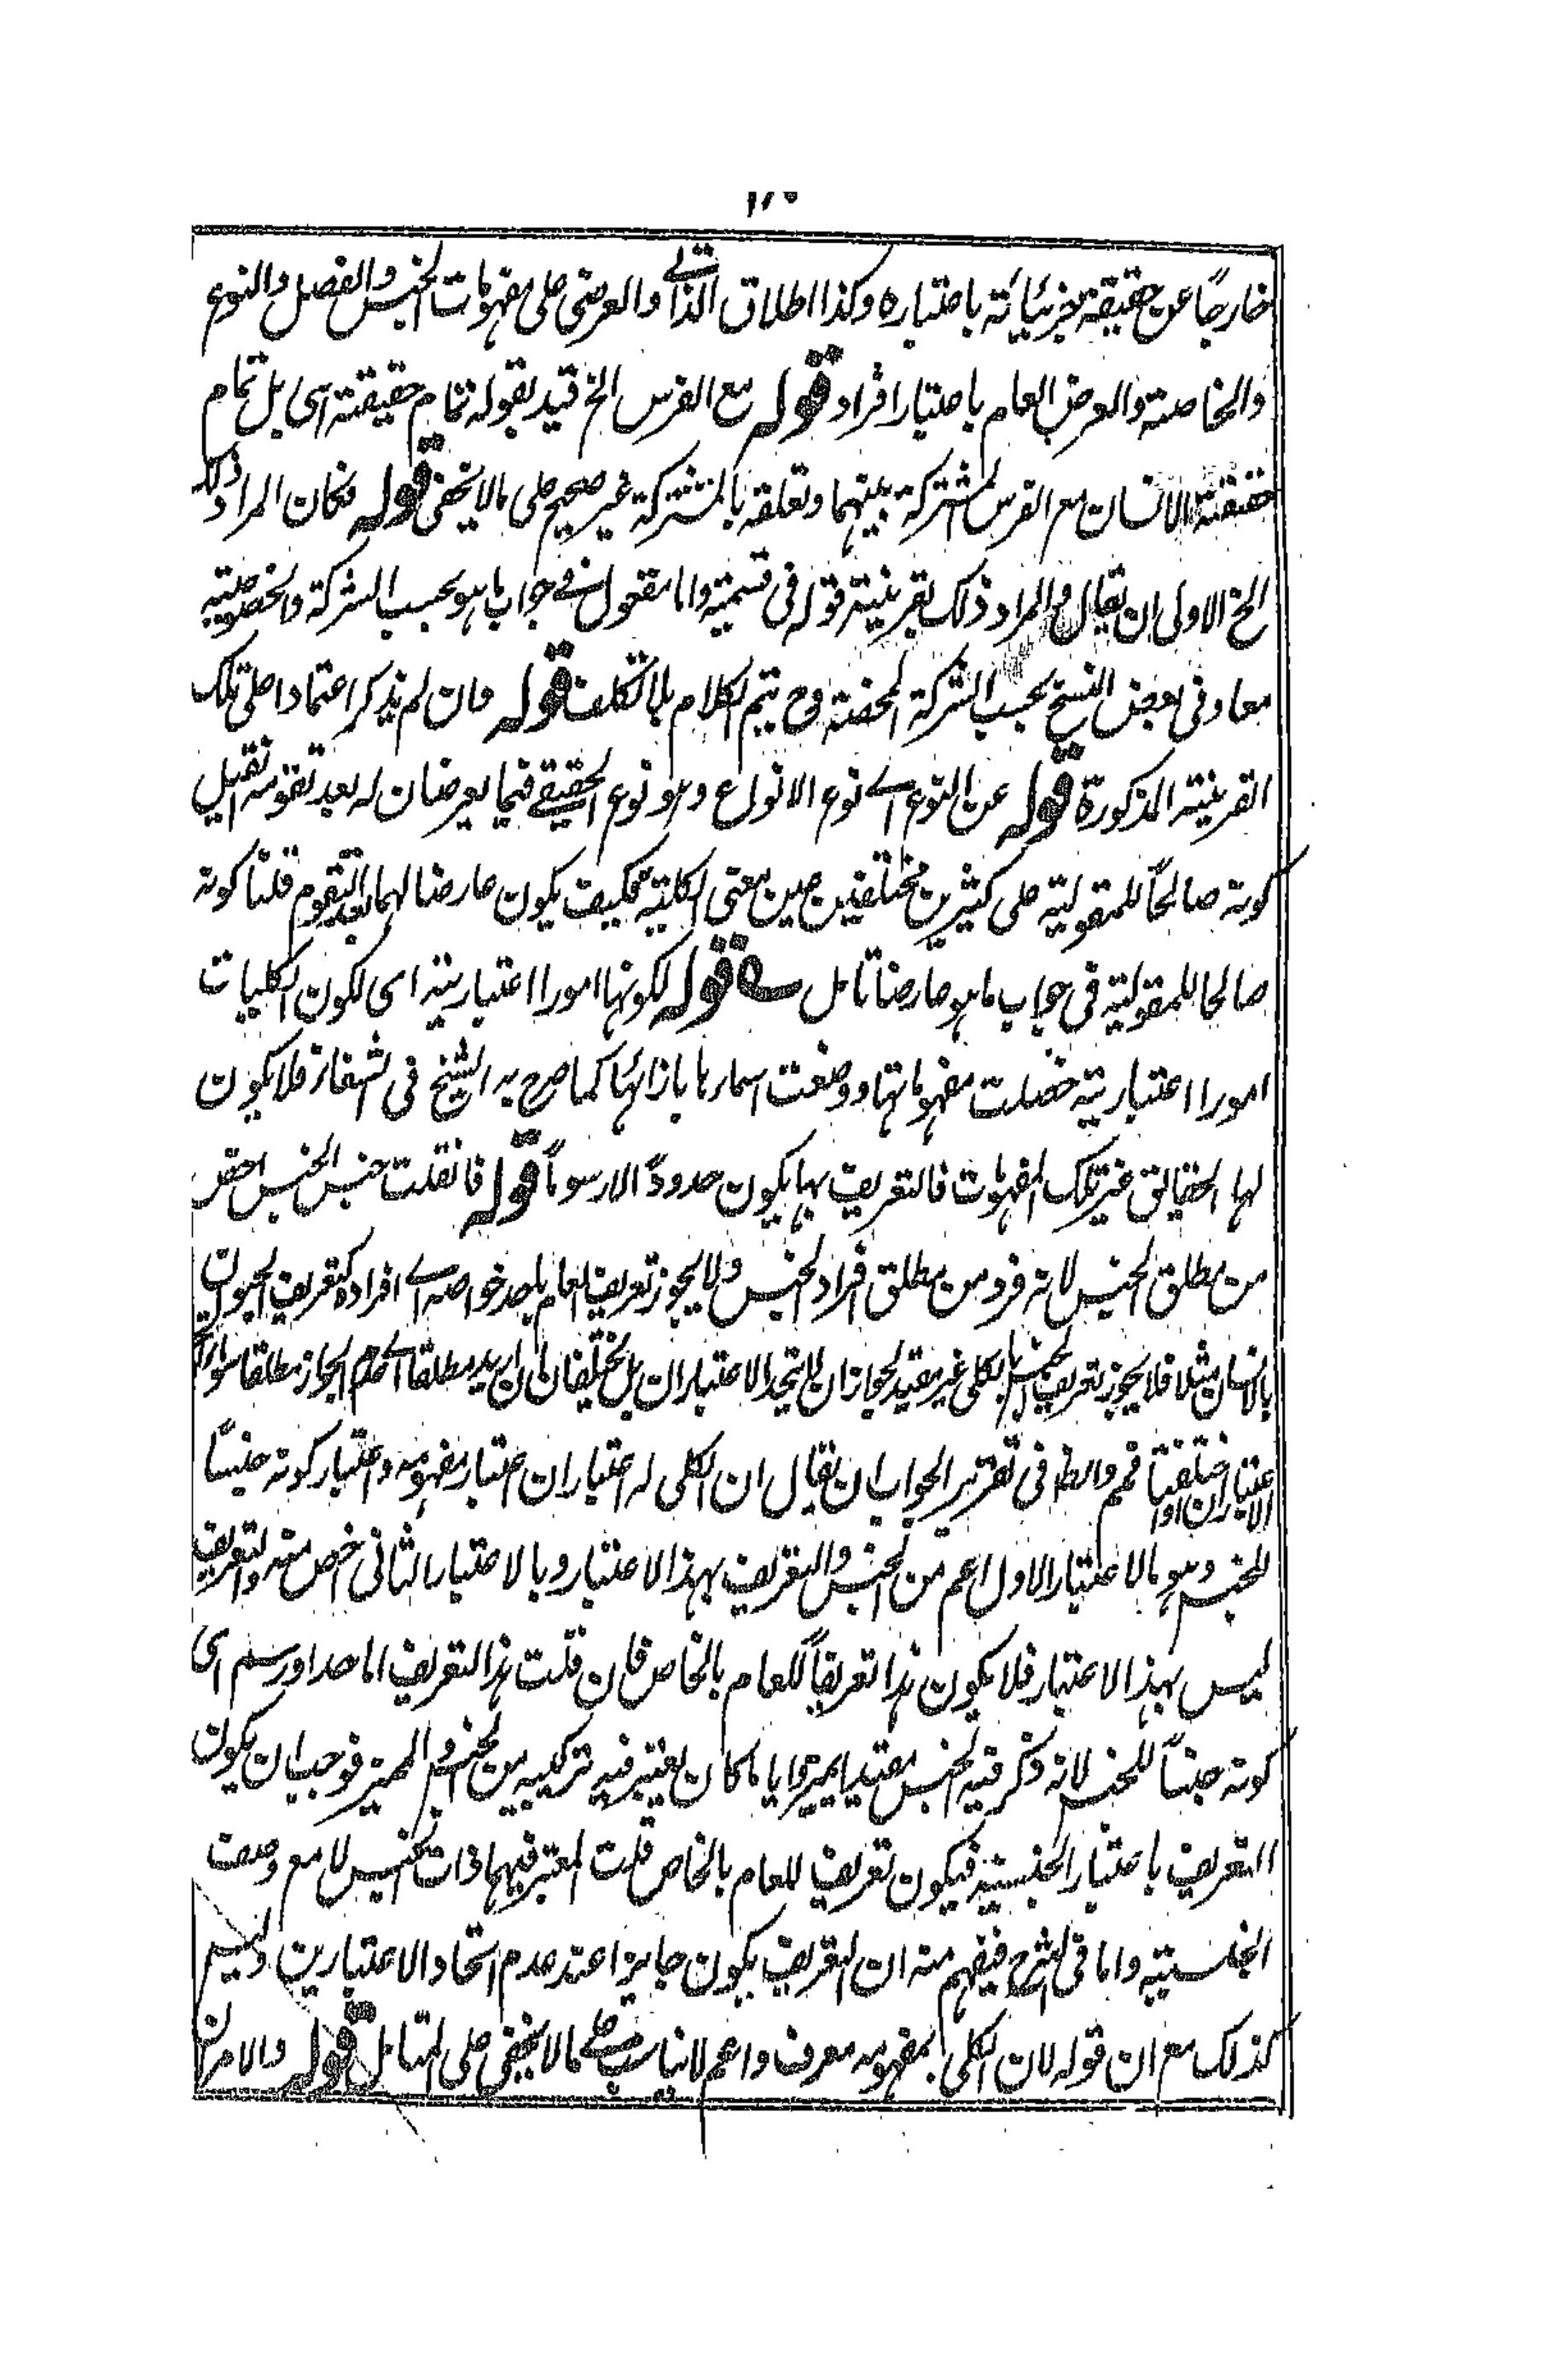 خارجًا عن حقيقة جزئياته باعتباره وكذا اطلاق الذاتي والعرضى على مفهومات الجنس والفصل والنوع
والخاصة والعرض العام باعتبار افراد قوله مع الفرس الخ قيد بقوله تمام حقيقته اى بل تمام
حقيقة الانسان مع الفرس المشتركة بينهما وتعلقه بالمشتركة غير صحيح على مالا يخفى قوله فكان المراد ذلك
الخ الاولى ان يقال والمراد ذلك بقرينة قوله فى قسميه واما مقول في جواب ما هو بحسب الشركة والخصوصية
معا وفى بعض النسخ بحسب الشركة المحضة وح يتم الكلام بلا تكلف قوله وان لم يذكر اعتمادا على تلك
القرينة المذكورة قوله عن النوع اے نوع الانواع وهو نوع الحقيقے فيما يعرضان له بعد تقومه فقيل
كونه صالحًا للمقولية على كثيرين مختلفين عين معنى الكلية فكيف يكون عارضا لهما بعد التقوم قلنا كونه
صالحا للمقولية فى جواب ماهو عارضا تامل قوله لكونها امورا اعتبارية اى لكون الكليات
امورا اعتبارية حصلت مفهوماتها ووضعت اسمارها بازائها كما صرح به الشيخ فى الشفاء فلا يكون
لها الحقائق غير تلك المفهومات فالتعريف بها يكون حدودًا لا رسومًا قوله فانقلت جنس الجنس اخص
من مطلق الجنس لانه فرد من مطلق افراد الجنس ولا يجوز تعريف العام باحد خواصه اے افراده كتعريف الحيوان
بالانسان مثلا فلا يجوز تعريف الجنس بالكلى غير مقيد لجواز ان لا يتحد الاعتباران بل يختلفان ان اريد مطلقا اے عدم الجواز مطلقا سواء اتحد
الاعتباران او اختلفتا فمم والظ فى تقرير الجواب ان يقال ان الكلى له اعتباران اعتبار مفهومه واعتبار كونه جنسًا
للجنس وهو بالاعتبار الاول اعم من الجنس والتعريف بهذا الاعتبار وبالاعتبار الثانى اخص منه والتعريف
ليس بهذا الاعتبار فلا يكون هذا تعريفًا للعام بالخاص فان قلت هذا التعريف اما حد او رسم اى
كونه جنسًا للجنس لانه ذكر فيه الجنس مقيدا بميز وايا ما كان يعتبر فيه تركيبه من الجنس والمميز فوجب ان يكون
التعريف باعتبار الجنسية فيكون تعريف للعام بالخاص قلت المعتبر فيهما ذات الجنس لا مع وصف
الجنسية واما فى الشرح فيفهم منه ان التعريف يكون جايزا عند عدم اتحاد الاعتبارين وليس
كذلك مع ان قوله لان الكلى بمفهومه معرف واعم لا يناسب على مالا يخفى على المتامل قوله والامران